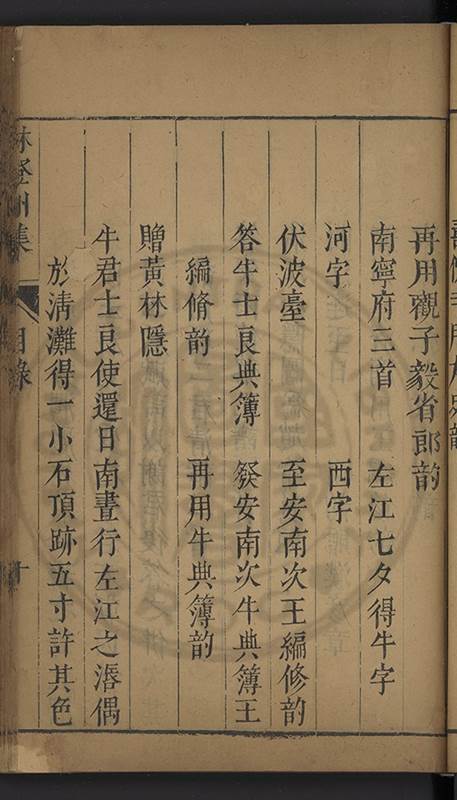 再用觀子毅省郎韵
南寧府三首　左江七夕得牛字
河字　西字
伏波臺　至安南次王編修韵
答牛士良典簿　發安南次牛典簿王
編脩韵　再用牛典簿韵
贈黃林隱
牛君士良使還日南晝行左江之滣偶
於清灘得一小石頂跡五寸許其色
林登州集　目錄　十